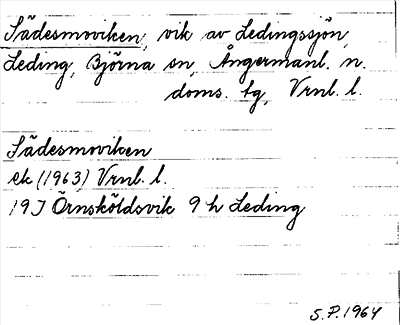 Sädesmoviken, vik av Ledingssjön,
Leding, Björna sn, Ångermanl. n.
doms. tg, Vrnl. l.
Sädesmoviken
ek (1963) Vrnb. l.
19J Örnsköldsvik 9 h Leding
S.P. 1964